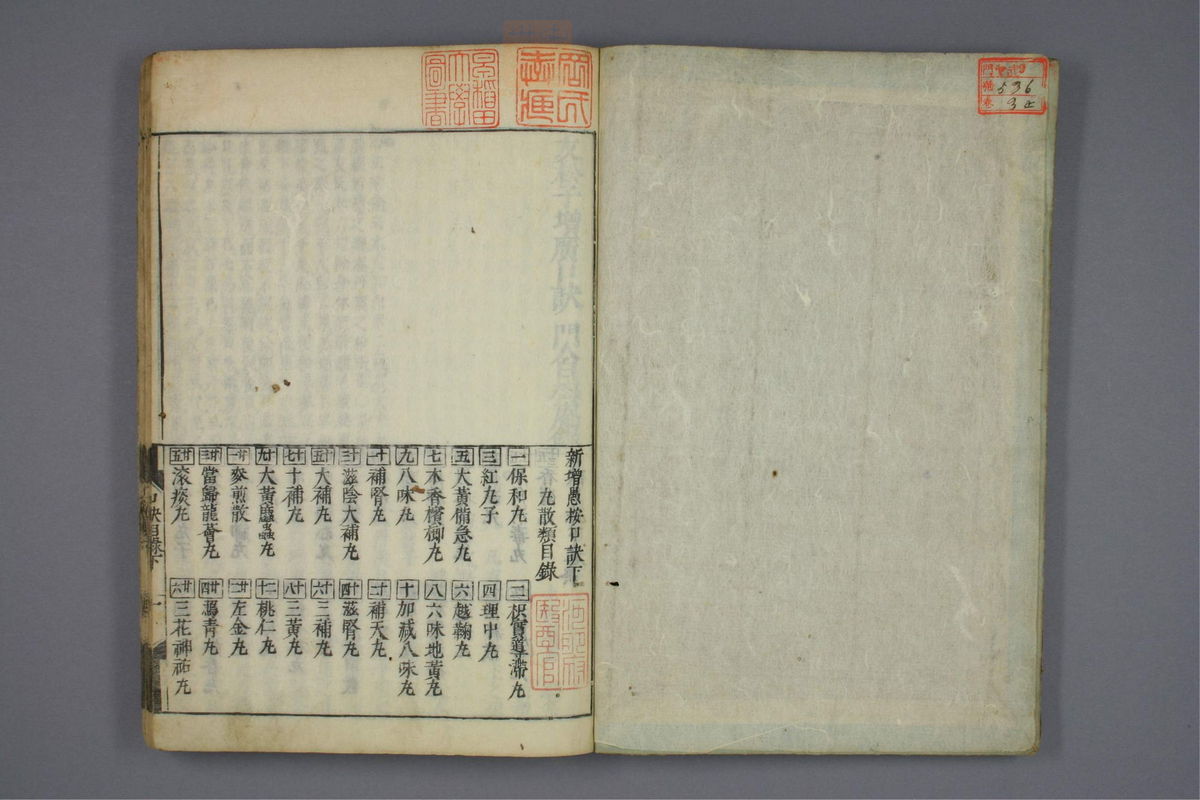 新增愚按口訣下
丸散類目錄
一 保和丸
二 枳實導滯丸
三 紅丸子
四 理中丸
五 大黃備急丸
六 越鞠丸
七 木香檳榔丸
八 六味地黃丸
九 八味丸
十 加減八味丸
十一 補腎丸
十二 補天丸
十三 滋陰大補丸
十四 滋腎丸
十五 大補丸
十六 三補丸
十七 十補丸
十八 三黃丸
十九 大黃䗪蟲丸
二十 桃仁丸
廿一 麥煎散
廿二 左金丸
廿三 當歸龍薈丸
廿四 瀉青丸
廿五 滾痰丸
廿六 三花神祐丸
口訣目錄下
一
早稻田大學圖書
536
3